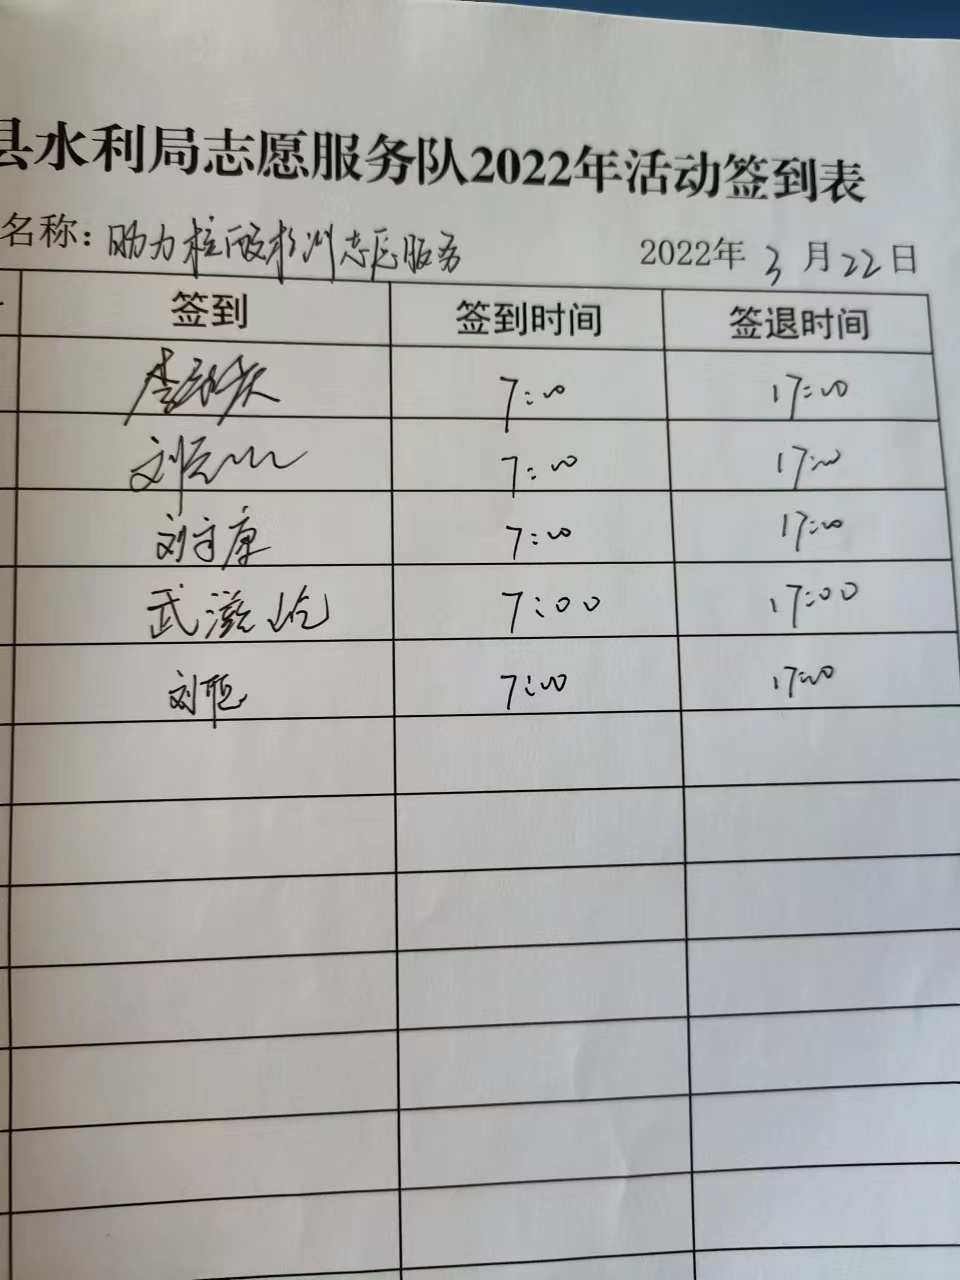 县水利局志愿服务队2022年活动签到表
名称：助力核酸检测志愿服务 2022年3月22日
签到 签到时间 签退时间
7:00 17:00
刘 7:00 17:00
刘守康 7:00 17:00
武滋屹 7:00 17:00
刘恒 7:00 17:00